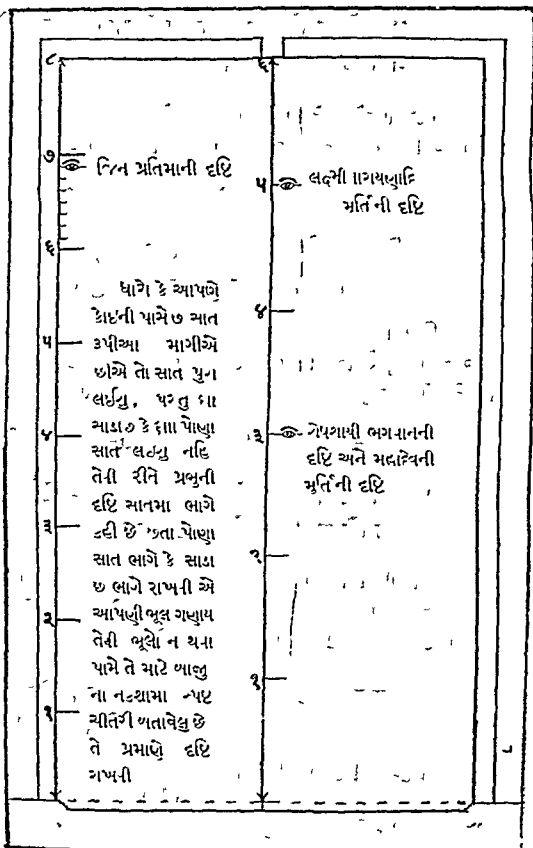 ૮
૭
જિન પ્રતિમાની દૃષ્ટિ
૬
ધારો કે આપણે
કોઇની પાસે ૭ સાત
૫
રૂપીઆ માગીએ
છીએ તો સાત પુરા
લઈશુ, પરંતુ ૬ાા
૪
સાડા છ કે ૬ાાા પોણા
સાત લઇશુ નહિ
તેવી રીતે પ્રભુની
દૃષ્ટિ સાતમા ભાગે
૩
કહી છે છતા પોણા
સાત ભાગે કે સાડા
છ ભાગે રાખવી એ
આપણી ભૂલ ગણાય
૨
તેવી ભૂલો ન થવા
પામે તે માટે બાજુ
ના નકશામા સ્પષ્ટ
૧
ચીતરી બતાવેલુ છે
તે પ્રમાણે દૃષ્ટિ
રાખવી
૬
૫
લક્ષ્મીનારાયણાદિ
મૂર્તિની દૃષ્ટિ
૪
૩
શેષશાયી ભગવાનની
દૃષ્ટિ અને મહાદેવની
મુર્તિની દૃષ્ટિ
૨
૧